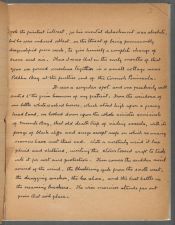 yet the patient labour, in his mental detachment was absolute,
but he was induced at last, on the threat of being permanently
disqualified from work, to give himself a complete change of
scene and air. Thus it was that in the early months of that
year we found ourselves together in a small cottage near
Poldhu Bay at the further end of the Cornish Peninsula.
It was a singular spot, and one peculiarly well
suited to the grim humour of my patient. From the windows of
our little whitewashed house, which stood high upon a grassy
headland, we looked down upon the whole sinister semicircle
of Mounts Bay, that old death trap of sailing vessels, with its
fringe of black cliffs and surge swept reefs on which so many
seamen have met their end. With a northerly breeze it lies
placid and sheltered, inviting the storm tossed craft to tack
into it for rest and protection. Then comes the sudden swirl
round of the wind, the blustering gale from the south west,
the dragging anchor, the lee shore, and the last battle in
the creaming breakers. The wise mariner stands far out
from that evil place.